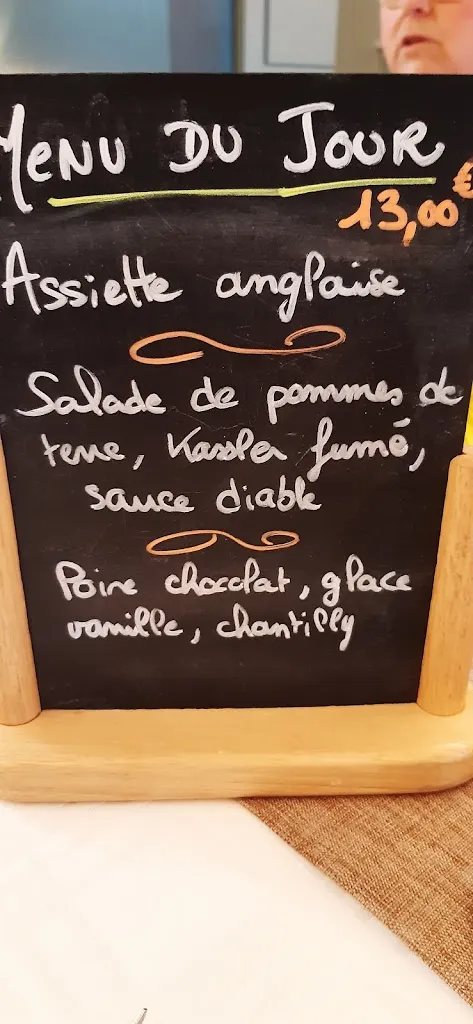 MENU DU JOUR
13,00 €
Assiette anglaise
Salade de pommes de
terre, Kassler fumé,
sauce diable
Poire chocolat, glace
vanille, chantilly